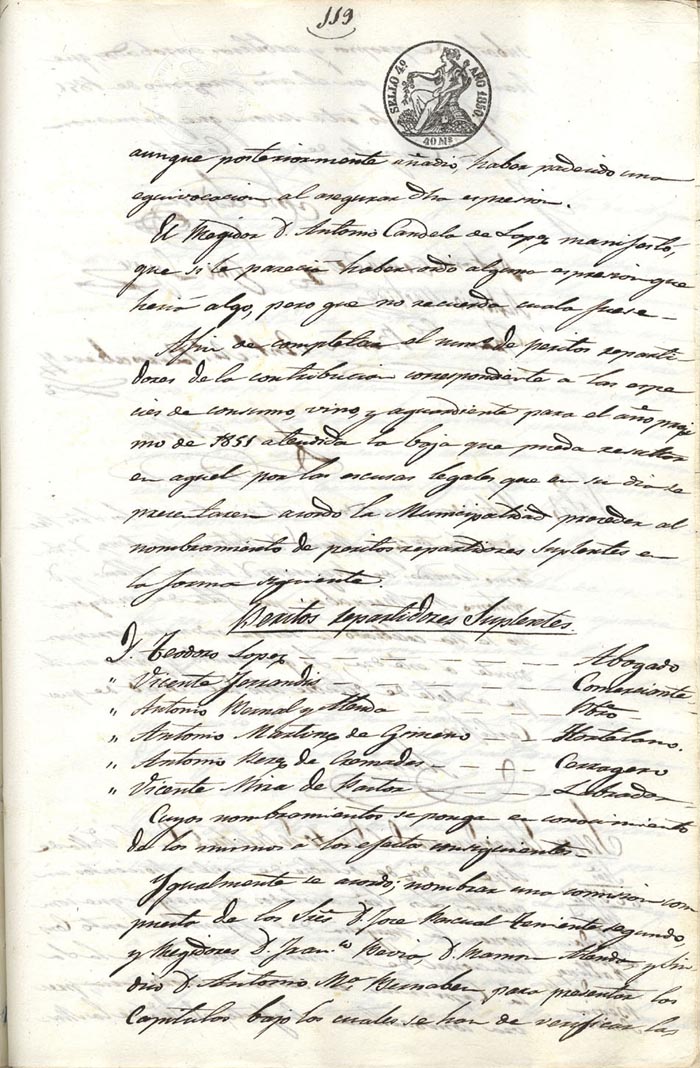 119
SELLO 4º AÑO 1850.
40 Ms.
aunque posteriormente añadió, haber padecido una
equivocacion al asegurar dha espresion.
El Regidor D. Antonio Candela de Lopez manifestó,
que si le parecia haber oido alguna espresion que
heria algo, pero que no recuerda cuala fuese-
Afin de completar el num.º de peritos reparti-
dores de la contribucion correspondiente a las espe
cies de consumo, vino, y aguardiente para el año proxi
mo de 1851 atendida la baja que pueda resultar
en aquel por las escusas legales que en su dia se
presentaren acordo la Municipalidad proceder al
nombramiento de peritos repartidores Suplentes en
la forma siguiente.
Peritos repartidores Suplentes.
D. Teodoro Lopez - - - - - - - Abogado
" Vicente - - - - - - Comerciante-
" Antonio Bernal y Alenda - - - Pbro
" Antonio Martinez de Gimeno - - Hortelano.
" Antonio Perez de Cremades - - - - Cerragero
" Vicente Mira de Pastor - - - Labrador-
Cuyos nombramientos se ponga en conocimiento
de los mismos a los efectos consiguientes-
Ygualmente se acordo; nombrar una comision com
puesta de los Sres D. Jose Pascual teniente segundo,
y Regidores D. Fran.co Bevia, D. Ramon Alenda, y Sin
dico D. Antonio Mª Bernabeu para presentar los
Capitulos bajo los cuales se han de verificar las